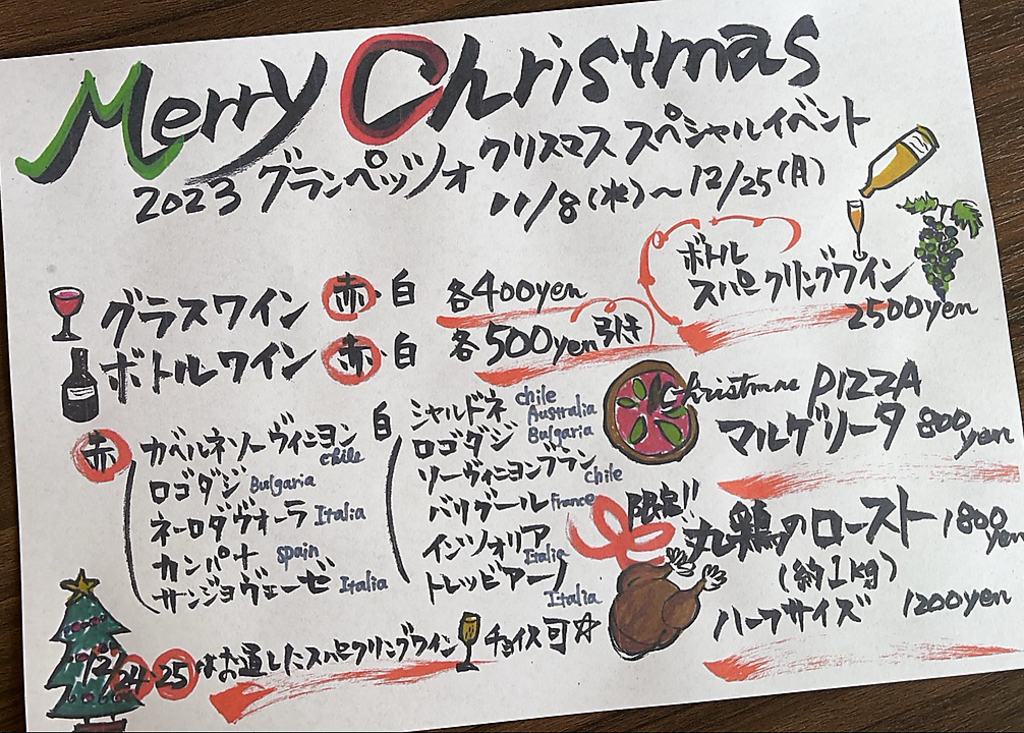 Merry Christmas
2023 グランペッツォ クリスマス スペシャルイベント
11/8(水)〜12/25(月)
グラスワイン 赤・白 各400yen
ボトルワイン 赤・白 各500yen引き
ボトル
スパークリングワイン
2500yen
赤
カベルネソーヴィニヨン chile
ロゴダジ Bulgaria
ネーロダヴォーラ Italia
カンパナ spain
サンジョヴェーゼ Italia
白
シャルドネ chile Australia
ロゴダジ Bulgaria
ソーヴィニヨンブラン chile
バリグール france
インツォリア Italia
トレッビアーノ Italia
christmas PIZZA
マルゲリータ 800yen
限定!!
丸鶏のロースト 1800yen
(約1kg)
ハーフサイズ 1200yen
12/24・25はお通しにスパークリングワインチョイス可☆